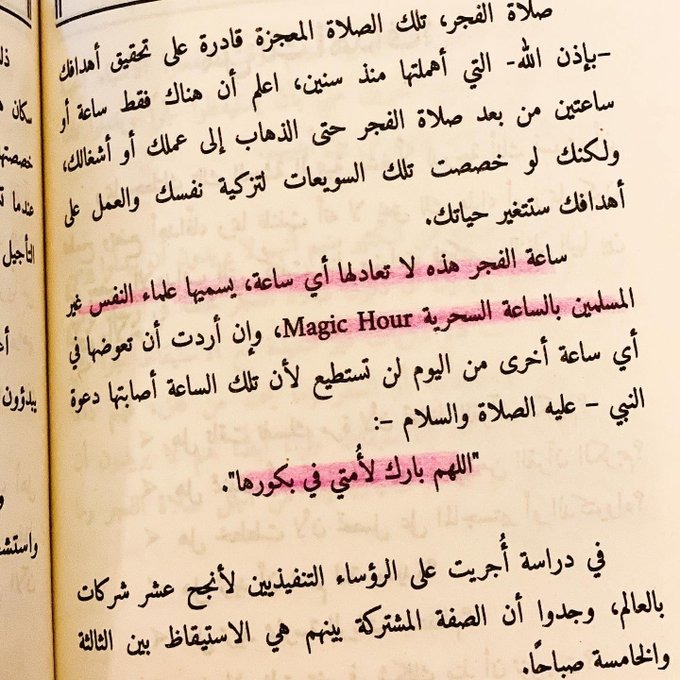 صلاة الفجر، تلك الصلاة المعجزة قادرة على تحقيق أهدافك
–بإذن الله- التي أهملتها منذ سنين، اعلم أن هناك فقط ساعة أو
ساعتين من بعد صلاة الفجر حتى الذهاب إلى عملك أو أشغالك،
ولكنك لو خصصت تلك السويعات لتزكية نفسك والعمل على
أهدافك ستتغير حياتك.
ساعة الفجر هذه لا تعادلها أي ساعة، يسميها علماء النفس غير
المسلمين بالساعة السحرية Magic Hour، وإن أردت أن تعوضها في
أي ساعة أخرى من اليوم لن تستطيع لأن تلك الساعة أصابتها دعوة
النبي – عليه الصلاة والسلام –:
"اللهم بارك لأُمتي في بكورها".
في دراسة أُجريت على الرؤساء التنفيذيين لأنجح عشر شركات
بالعالم، وجدوا أن الصفة المشتركة بينهم هي الاستيقاظ بين الثالثة
والخامسة صباحًا.
سكان
خصصتها
عندما
التأجيل
يبدؤون